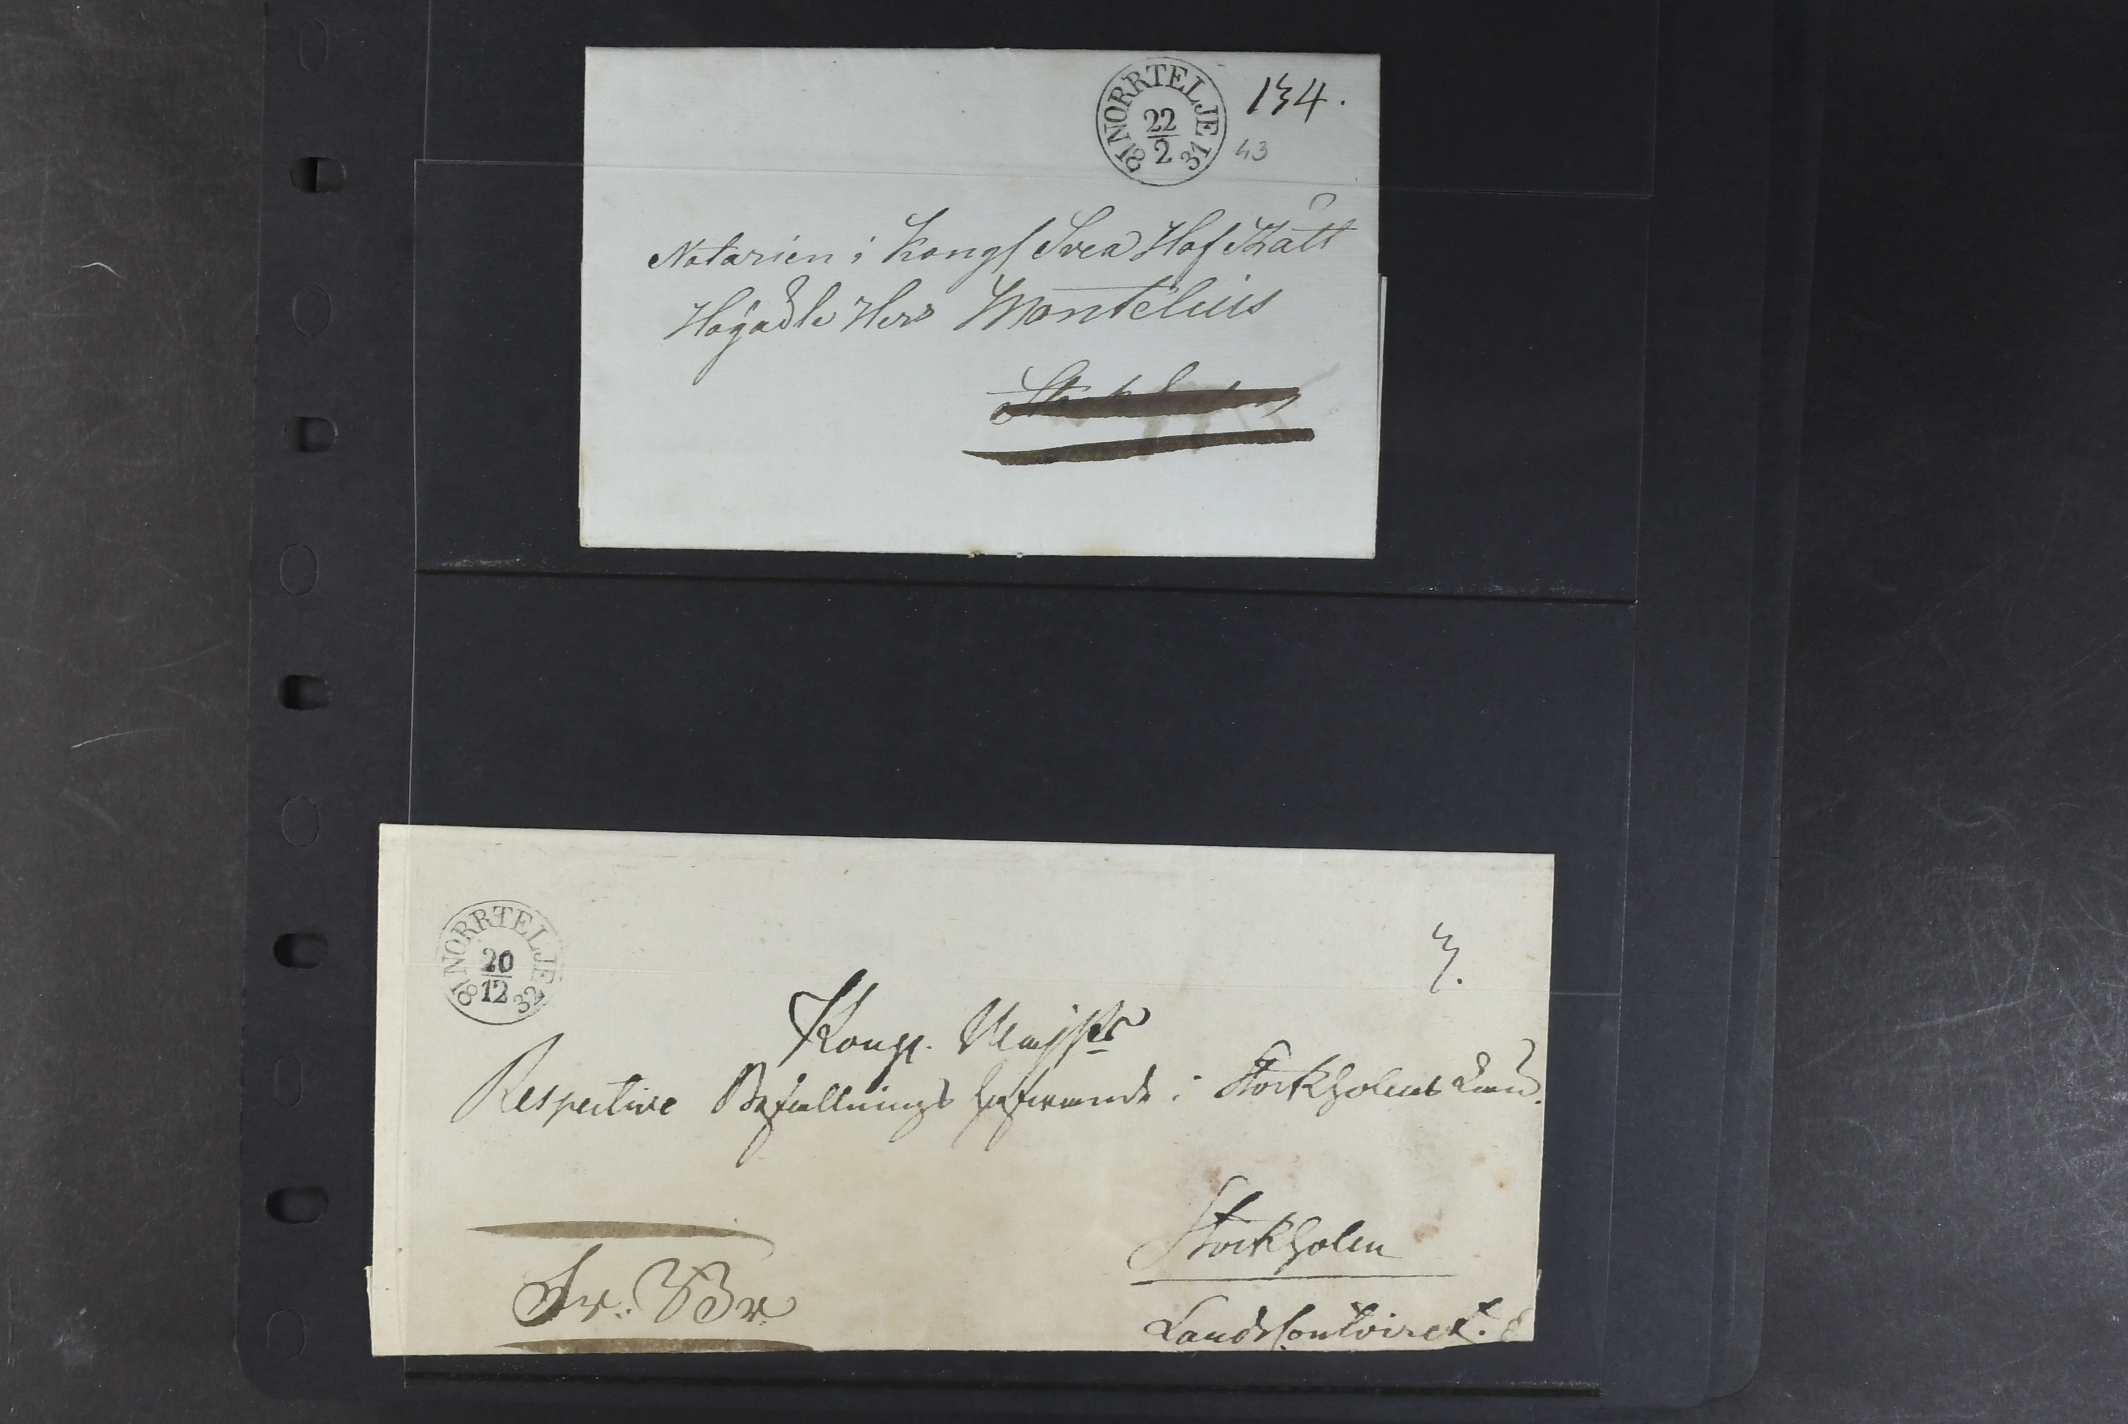 NORRTELJE
22
2
18 31
134.
43
Notarien i Kongl Svea Hof Rätt
Högädle Herr Montelius
Stockholm
NORRTELJE
20
12
18 32
3.
Kongl. Maijsts
Respective Befallnings hafwande i Stockholms Län.
Stockholm
Fr: Br
LandsContoiret.